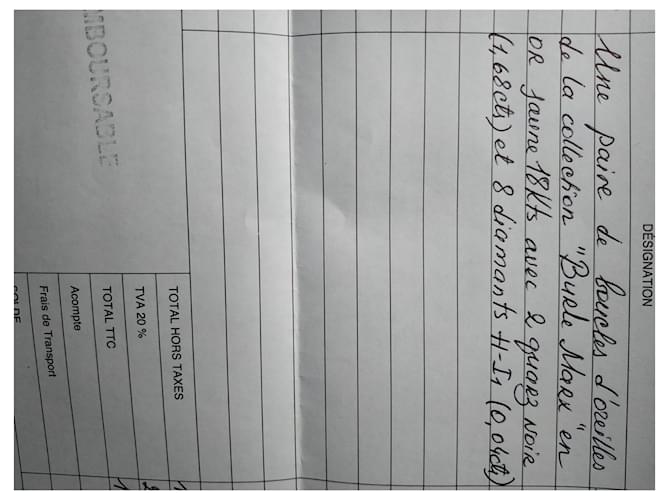 DÉSIGNATION
Une paire de boucles d'oreilles
de la collection "Burle Marx" en
OR jaune 18Kts avec 2 quarz noir
(1,68cts) et 8 diamants H-I1 (0,04cts)
MBOURSABLE
TOTAL HORS TAXES
TVA 20 %
TOTAL TTC
Acompte
Frais de Transport
SOLDE